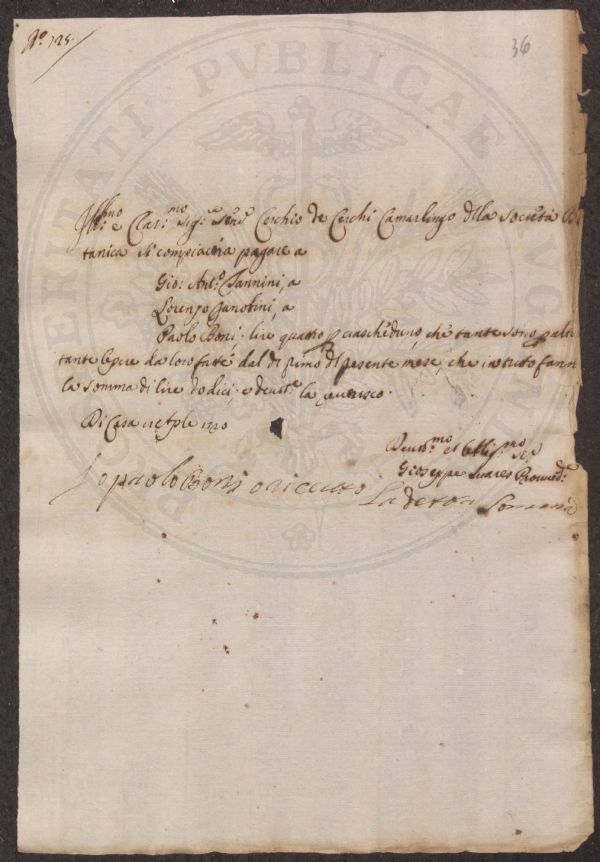 N.º 125.
36
Ill:mo e Clar:mo Sig:re Sen:re Cerchio de Cerchi Camarlingo della Società Bo
tanica si compiacerà pagare a
Gio: Ant:o Nannini, a
Lorenzo Zanobini, a
Paolo Boni, lire quattro p ciascheduno, che tante sono p alt
tante da loro fatte dal dì primo del presente mese, che in tutto fann
la somma di lire dodici, e devot:e la reverisco.
Di Casa 1720
Devot:mo et Obblig:mo Se:re
Gioseppe Suares Proved:e
Io paolo Boni o riceuto
La detta Somma
PROSPERITATI PUBLICAE AUG